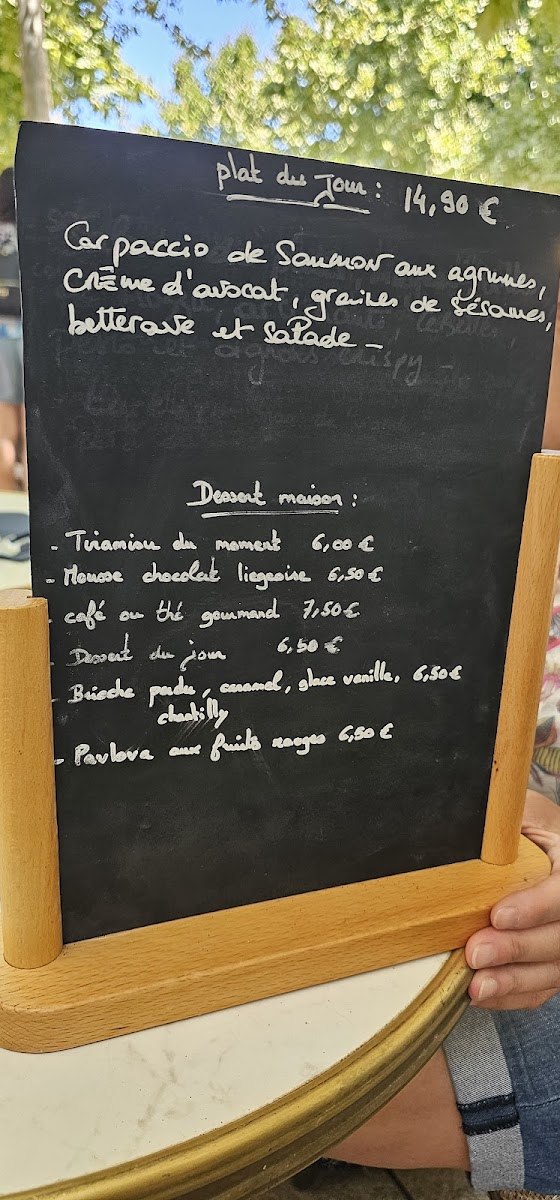 plat du Jour : 14,90 €
Carpaccio de Saumon aux agrumes,
Crème d'avocat, graines de sésames,
betterave et salade -
Dessert maison :
- Tiramisu du moment 6,00 €
- Mousse chocolat liegeoise 6,50 €
- café ou thé gourmand 7,50 €
- Dessert du jour 6,50 €
- Brioche perdu, caramel, glace vanille, 6,50 €
chantilly
- Pavlova aux fruits rouges 6,50 €